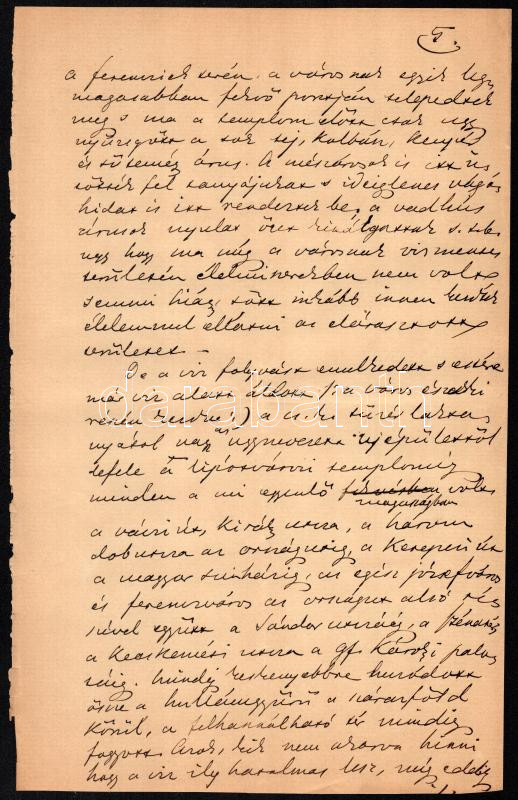 5.
a ferencziek terén a városnak egyik leg
magasabban fekvő pontján telepedtek
meg s ma a templom előtt csak úgy
nyüzsgött a sok tej, kolbász, kenyér
és sütemény árus. A mészárosok is itt ü
tötték fel tanyájukat s ideiglenes vágó
hidat is itt rendeztek be, a vadhús
árusok nyulat őzet kínálgattak s. t. b.
úgy hogy ma még a városnak vízmentes
területén élelmiszerekben nem volt
semmi hiány, sőt inkább innen
élelemmel ellátni az elárasztott
területet –
De a víz folyvást emelkedett s estére
már víz alatt állott /: a város északi
részén :/ a
nyától az úgynevezett újépülettől
lefele a lipótvárosi templomig
minden a mi egyenlő volt
magasságban
a váczi út, Király utcza, a három
dob utcza az országútig, a Kerepesi út
a magyar színházig, az egész józsefváros
és ferenczváros az országút alsó ré
szével együtt a Sándor utczáig, a Széna
a Kecskeméti utcza a gf. Károlyi palo
táig. Mindig keskenyebbre
össze a hullámgyűrű a szárazföld
körül, a felhasználható tér mindig
fogyott. Azok, kik nem akarva hinni
hogy a víz ily hatalmas lesz, még eddig
darabanth